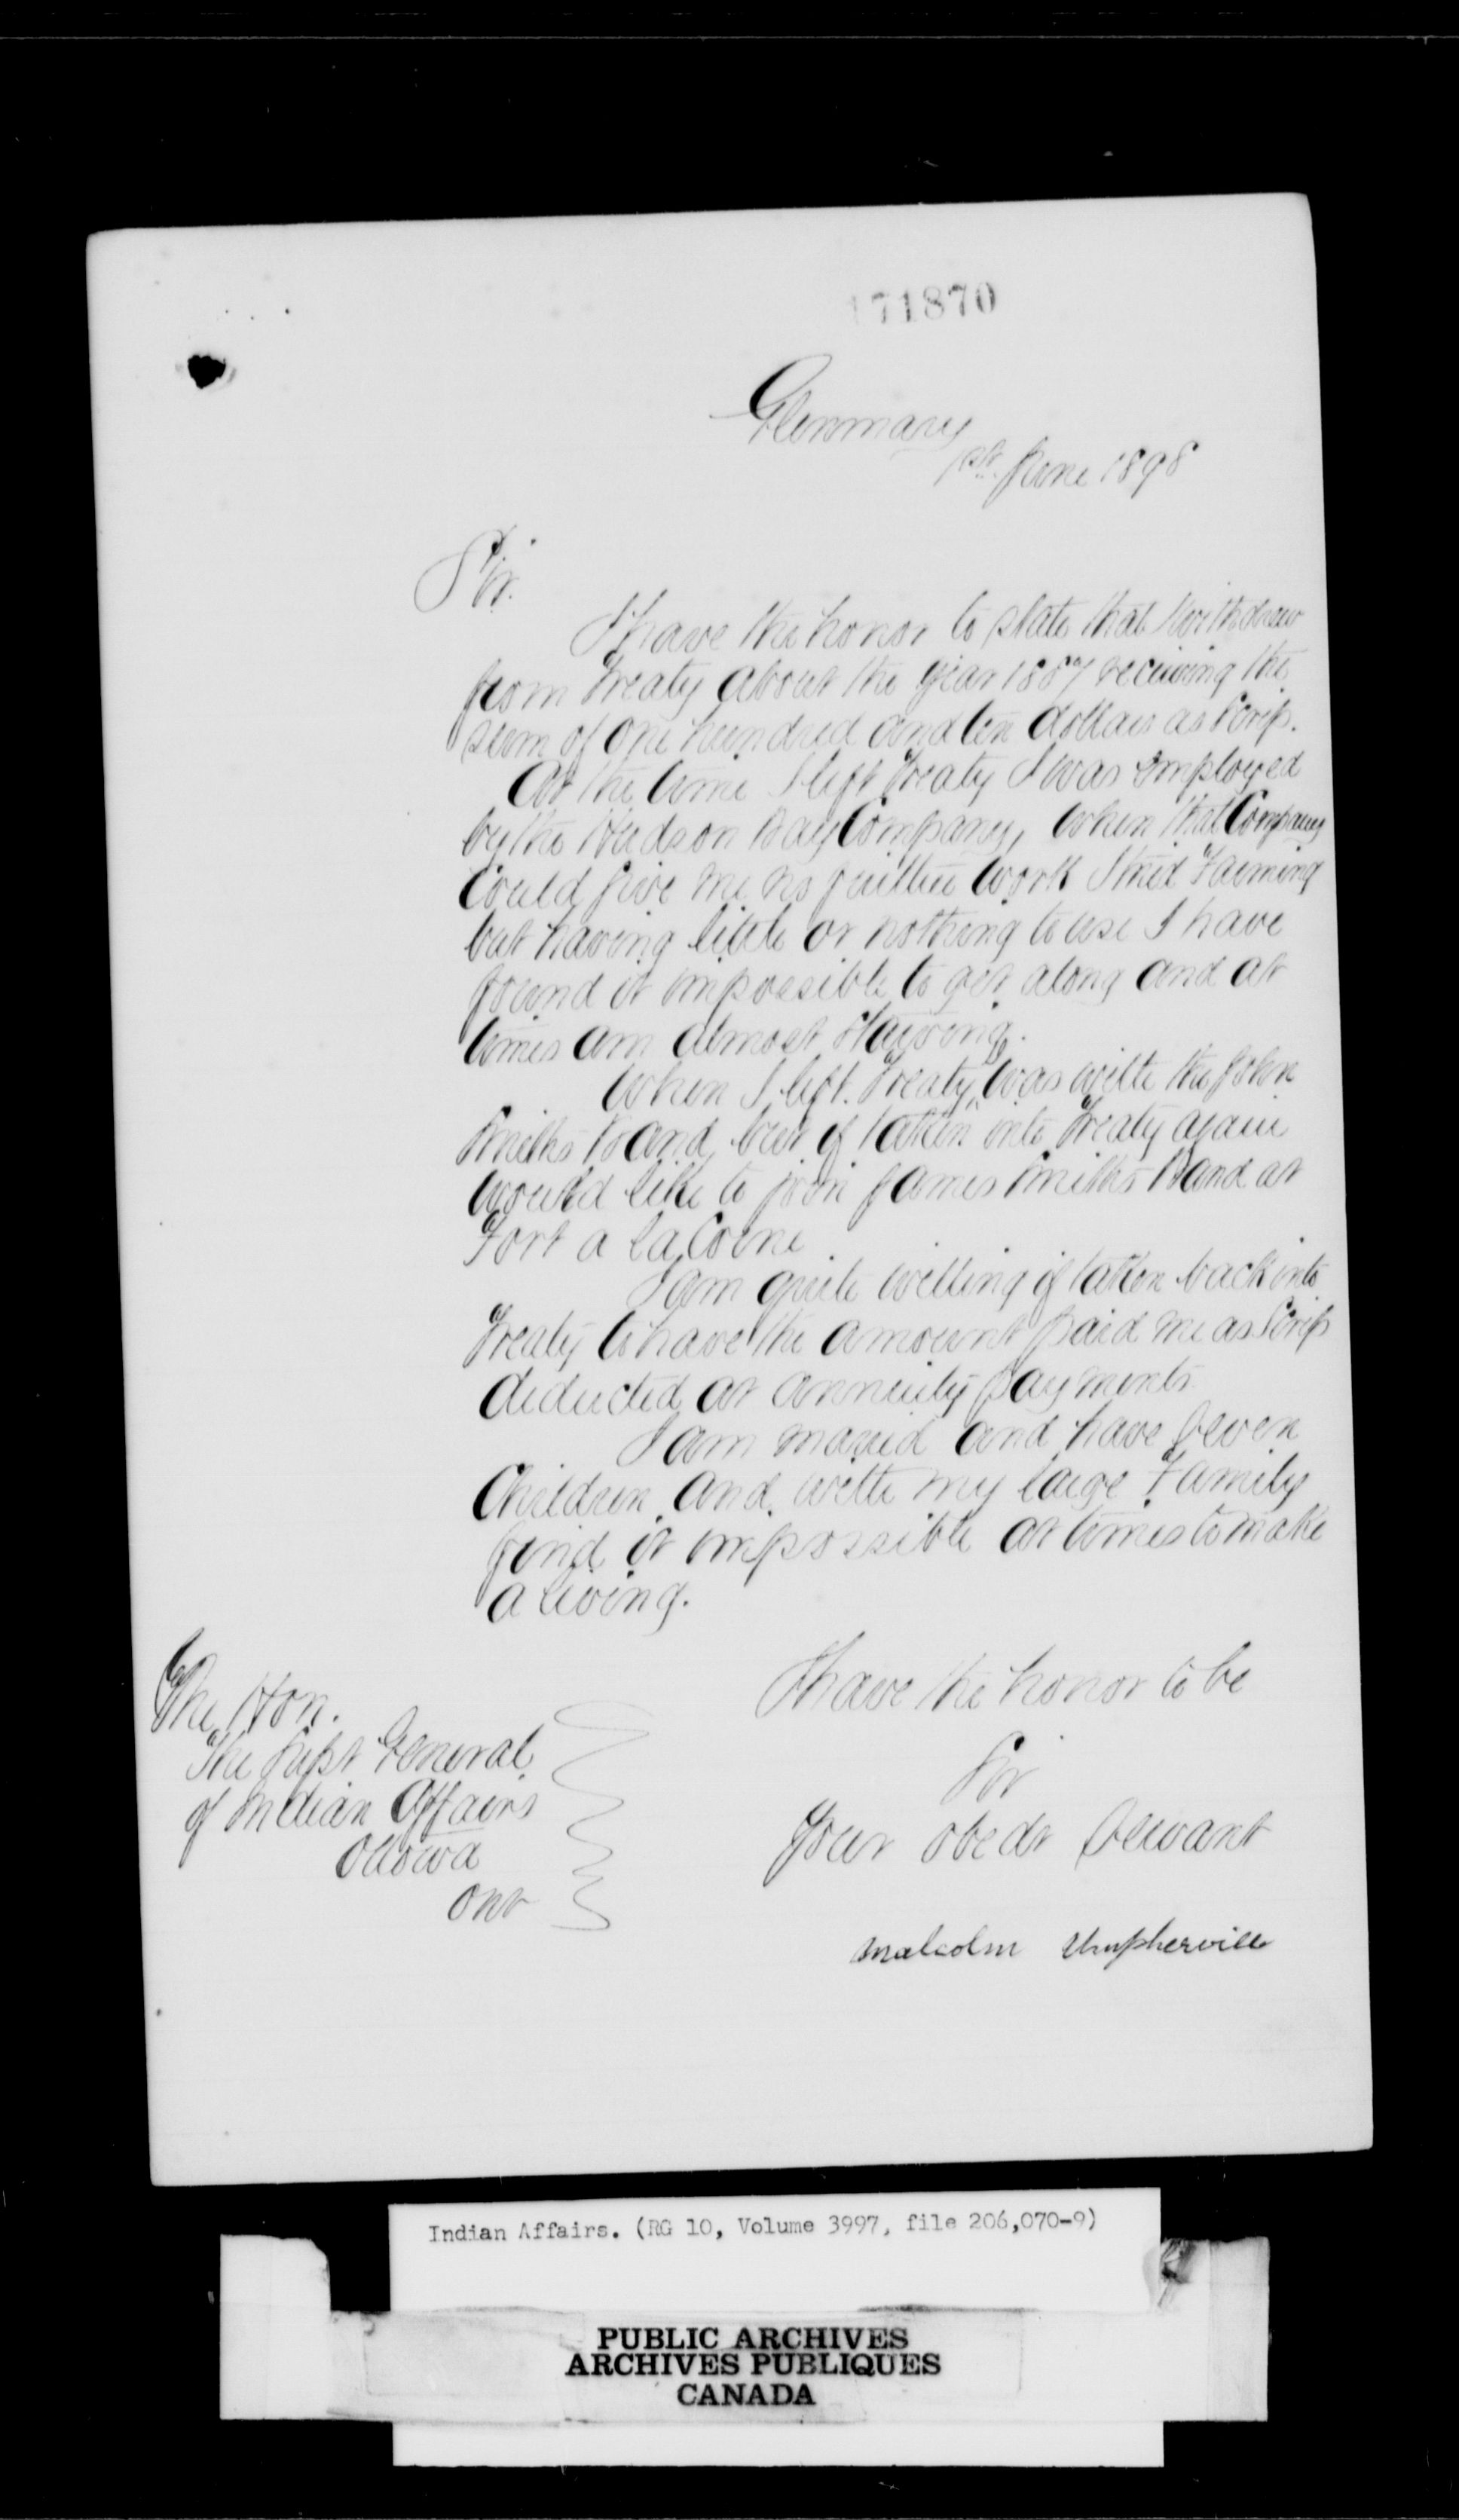 171870
Glenmary
1st June 1898
Sir.
I have the honor to state that I withdrew
from Treaty about the year 1887 receiving the
sum of one hundred and ten dollars as Scrip.
At the time I left Treaty I was employed
by the Hudson Bay Company, when that Company
could give me no further work I tried Farming
but having little or nothing to use I have
found it impossible to get along and at
times am almost starving.
When I left Treaty was with the John
Smiths Band but if taken into Treaty again
would like to join James Smiths Band at
Fort a la Corne
I am quite willing if taken back into
Treaty to have the amount paid me as Scrip
deducted at annuity payments.
I am maried and have seven
Children, and with my large Family
find it impossible at times to make
a living.
I have the honor to be
Sir
Your obedt Servant
Malcolm Umpherville
The Hon.
The Supt General
of Indian Affairs
Ottawa
Ont
Indian Affairs. (RG 10, Volume 3997, file 206,070-9)
PUBLIC ARCHIVES
ARCHIVES PUBLIQUES
CANADA